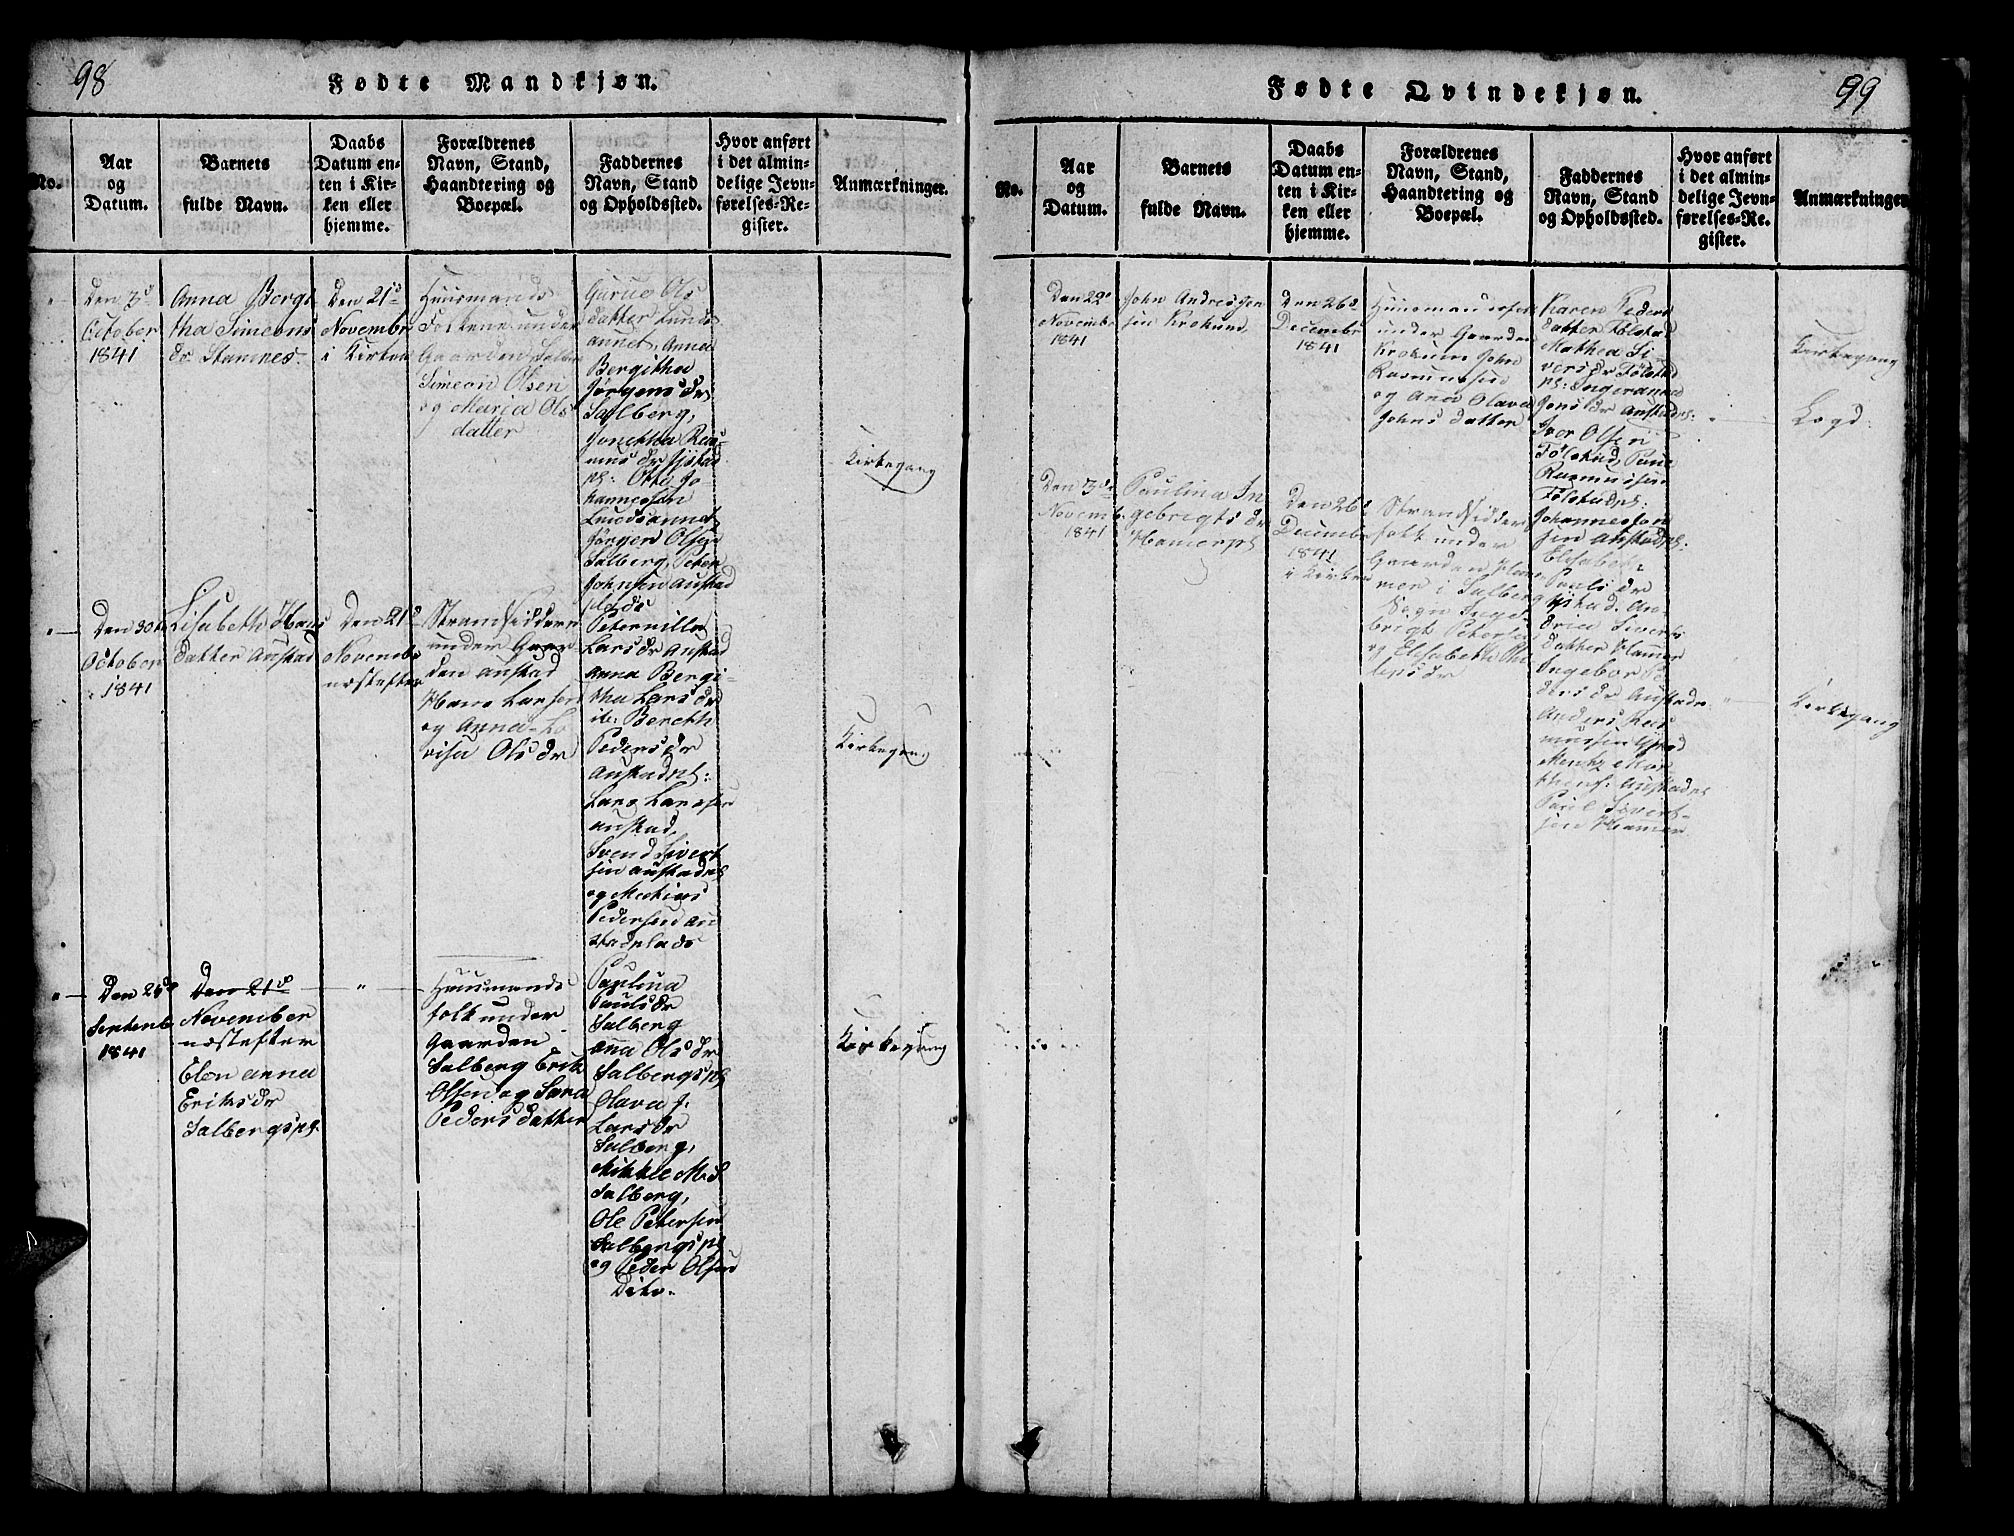 98
Fødte Mandkjøn.
No.
Aar
og
Datum.
Barnets
fulde Navn.
Daabs
Datum en-
ten i Kir-
ken eller
hjemme.
Forældrenes
Navn, Stand,
Haandtering og
Boepæl.
Faddernes
Navn, Stand
og Opholdssted.
Hvor anført
i det almin-
delige Jevn-
førelses-Re-
gister.
Anmærkninger.
Den 3d
October
1841
Anna Bergi
tha Simeons
dr Stamnes.
Den 21d
Novembr
i Kirken
Huusmands
Folkene under
Gaarden Salber
Simeon Olsen
og Maria Ols
datter
Gurue Ols
datter Lunds
annet, Anna
Bergitha
Jørgens dr
Salberg,
Jonetha Ras-
mus dr
ps: Otte Jo
hannesen
Lundsannet
Jørgen Olsen
Salberg, Peter
Johnsen Austad
plads
Kirkegang
Den 30te
October
1841
Lisabeth Hans
datter Austad
Den 21d
Novembr
næstefter
Strandsiddern
under Gaar
den Austad
Hans Larsen
og Anna Lo
visa Ols dr
Peternille
Lars dr Austad
Anna Bergi-
tha Lars dr
ib: Bereth
Peders dr
Austadpl:
Lars Larssen
Austad,
Svend Sivert
sen Austadpl
og Mathias
Pedersen Au
stadplads
Kirkegang
Den 24d
Septemb
1841
Den 21d
November
næstefter
Elen Anna
Eriks dr
Salbergspl.
"
Huusmands
folk under
Gaarden
Salberg Erik
Olsen og Sara
Peders datter
Paulina
Pauls dr
Salberg
Ana Ols dr
Salbergs pl
Olava J.
Lars dr
Salberg,
Mikkel M. S.
Salberg,
Ole Petersen
Salbergs pl
og Peder Olsen
Dito.
Kirkegang
99
Fødte Qvindekjøn.
No.
Aar
og
Datum.
Barnets
fulde Navn.
Daabs
Datum en-
ten i Kir-
ken eller
hjemme.
Forældrenes
Navn, Stand,
Haandtering og
Boepæl.
Faddernes
Navn, Stand
og Opholdssted.
Hvor anført
i det almin-
delige Jevn-
førelses-Re-
gister.
Anmærkninger
Den 22de
Novembr
1841
John Andreas Jon
sen Krokum
Den 26d
Decembr
1841
Huusmandsfolk
under Gaarden
Krokum John
Rasmussen
og Ana Olava
Johns datter
Karen Peders
datter Følstad
Mathea Si
vers dr Følstad
ps: Ingeranna
Jens dr Austadps:
Iver Olsen
Følstad, Paul
Rasmussen
Følstadps:
Johannes Jon
sen Austadps:
Kirkegang
Logd.
Den 3de
Novemb.
1841
Paulina In
gebrigts dr
Hamerpl
Den 26d
Decembr
1841
i Kirken
Strandsidder
folk under
Gaarden Ham
mer i Salberg
Sogn Inge
brigt Petersen
og Elisabeth Phi
lips dr
Elisabet
Pauls dr
An
drea Siverts
datter Hammer
Ingebor Pe
ders dr Austadps
Anders Ras
mussen
Mentz Mor
tens: Austadps
Paul Sivert-
sen Hammer
Kirkegang